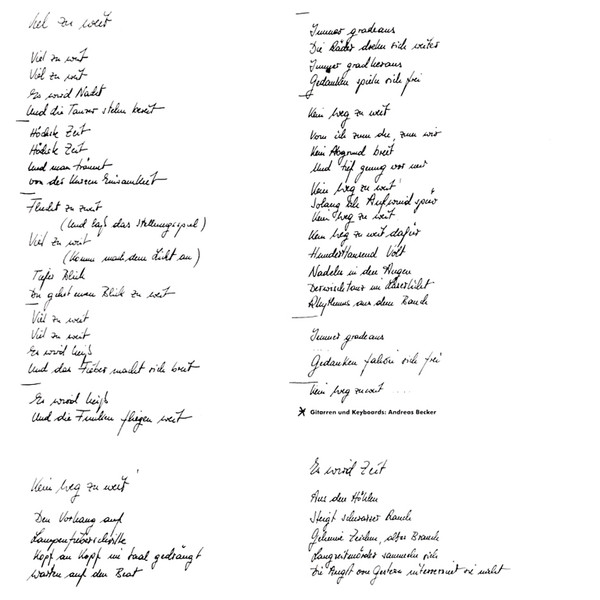 Viel zu weit
Viel zu weit
Viel zu weit
Es wird Nacht
Und die Tänzer stehn bereit
Höchste Zeit
Höchste Zeit
Und man träumt
von der kurzen Einsamkeit
Flucht zu zweit
(Und laß das Stellungsspiel)
Viel zu weit
(Komm mach dem Licht an)
Tiefer Blick
Da geht man Blick zu weit
Viel zu weit
Viel zu weit
Es wird heiß
Und das Fieber macht sich breit
Es wird heiß
Und die Funken fliegen weit
Kein Weg zu weit
Den Vorhang auf
Lampenfieber
Kopf an Kopf im Saal gedrängt
warten auf den Beat
Immer gradeaus
Die Räder drehn sich weiter
Immer gradheraus
Gedanken spieln sich frei
Kein Weg zu weit
Vom ich zum du, zum wir
Kein Abgrund breit
Und tief genug vor mir
Kein Weg zu weit
Solang ich Aufwind spür
Kein Weg zu weit
Kein Weg zu weit dafür
Hunderttausend Volt
Nadeln in den Augen
Derwischtanz im Laserlicht
Rhythmus aus dem Bauch
Immer gradeaus
Gedanken fahrn sich frei
Kein Weg zu weit ....
* Gitarren und Keyboards: Andreas Becker
Es wird Zeit
Aus den Höhlen
Steigt schwarzer Rauch
Geheime Zeichen, alter Brauch
sammeln sich
Die Angst von Gestern interessiert sie nicht